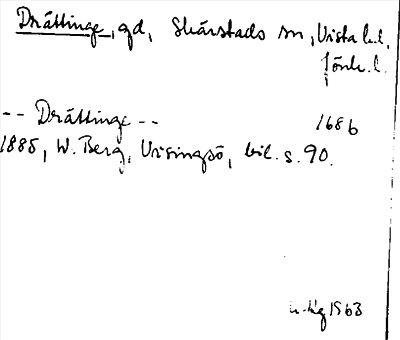 Drättinge, gd, Skärstads sn, Vista hd,
Jönk. l.
-- Drättinge -- 1686
1885, W. Berg, Visingsö, bil. s. 90.
1963